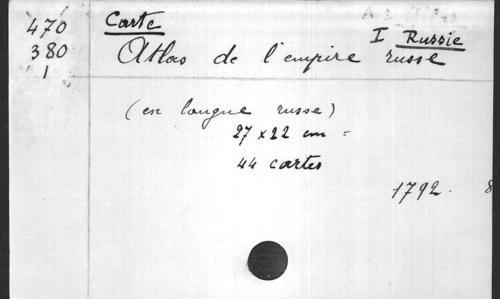 470
380
1
Carte
I Russie
Atlas de l'empire russe
(en langue russe)
27 x 22 cm =
44 cartes
1792. 8